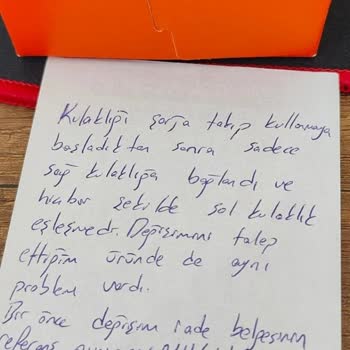 Kulaklığı şarja takıp kullanmaya
başladıktan sonra sadece
sağ kulaklığa bağlandı ve
hiçbir şekilde sol kulaklık
eşleşmedi. Değişimini talep
ettiğim üründe de aynı
problem vardı.
Bir önce değişim iade belgesinin
referans